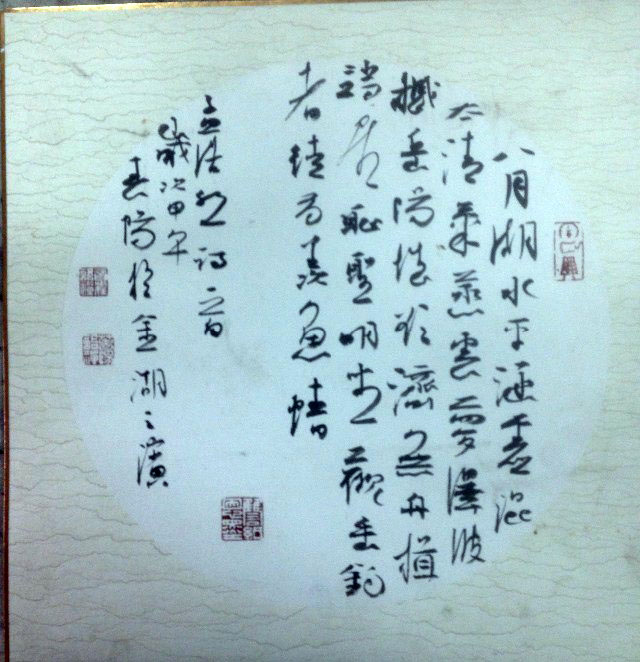 八月湖水平涵虚混
太清氣蒸雲夢澤波
撼岳陽城欲濟無舟楫
端居耻聖明坐觀垂釣
者徒有羨魚情
孟浩然詩一首
歲次甲午
春陽於金湖之濱